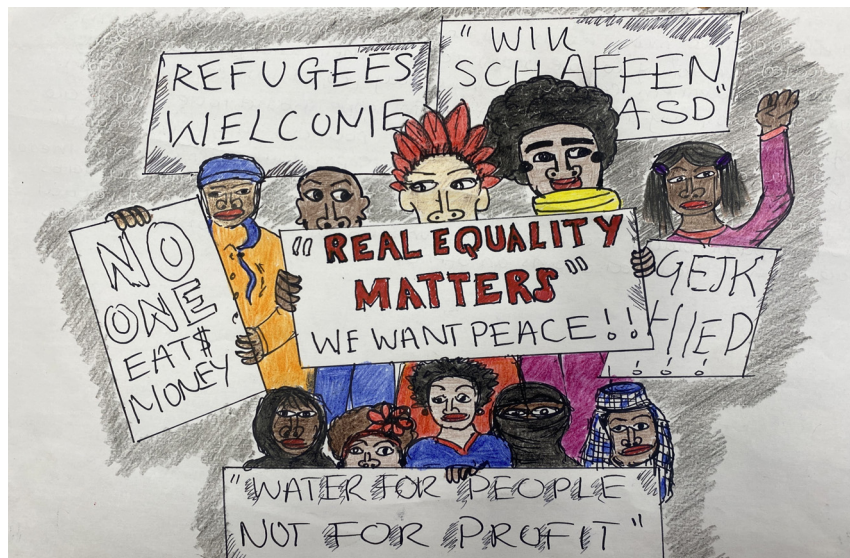 REFUGEES
WELCOME
" WIR
SCHAFFEN
ASD"
NO
ONE
EAT$
MONEY
" REAL EQUALITY
MATTERS"
WE WANT PEACE!!
GEJK
HIED
!!!!
"WATER FOR PEOPLE
NOT FOR PROFIT"